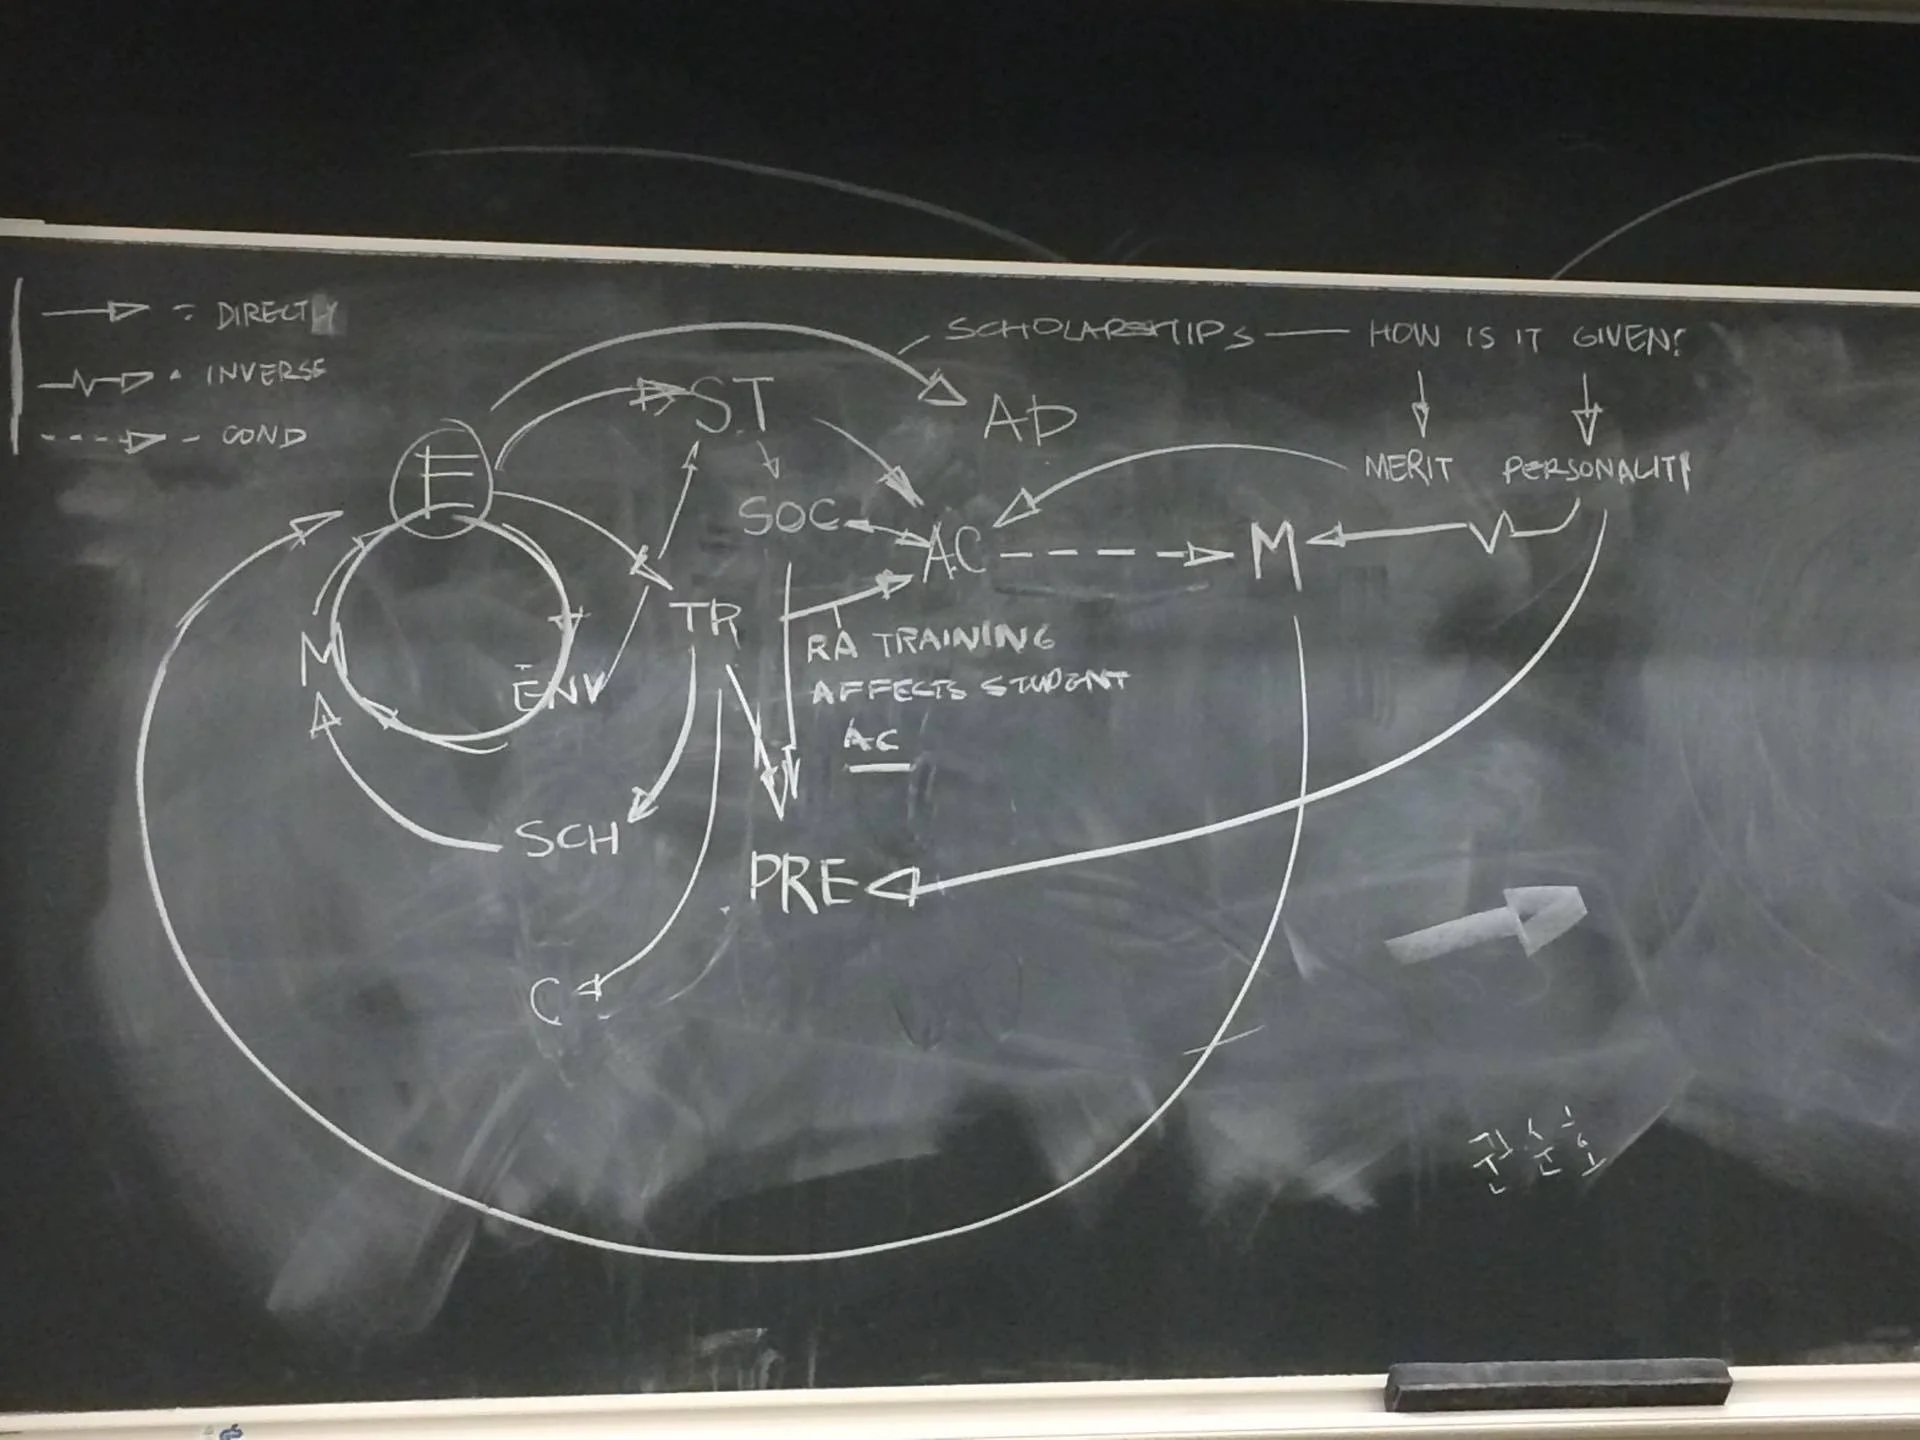 : DIRECTLY
· INVERSE
- COND
SCHOLARSHIPS — HOW IS IT GIVEN?
ST
AD
E
MERIT PERSONALITY
SOC
AC
M
TR
RA TRAINING
AFFECTS STUDENT
AC
M
ENV
SCH
PRE
C